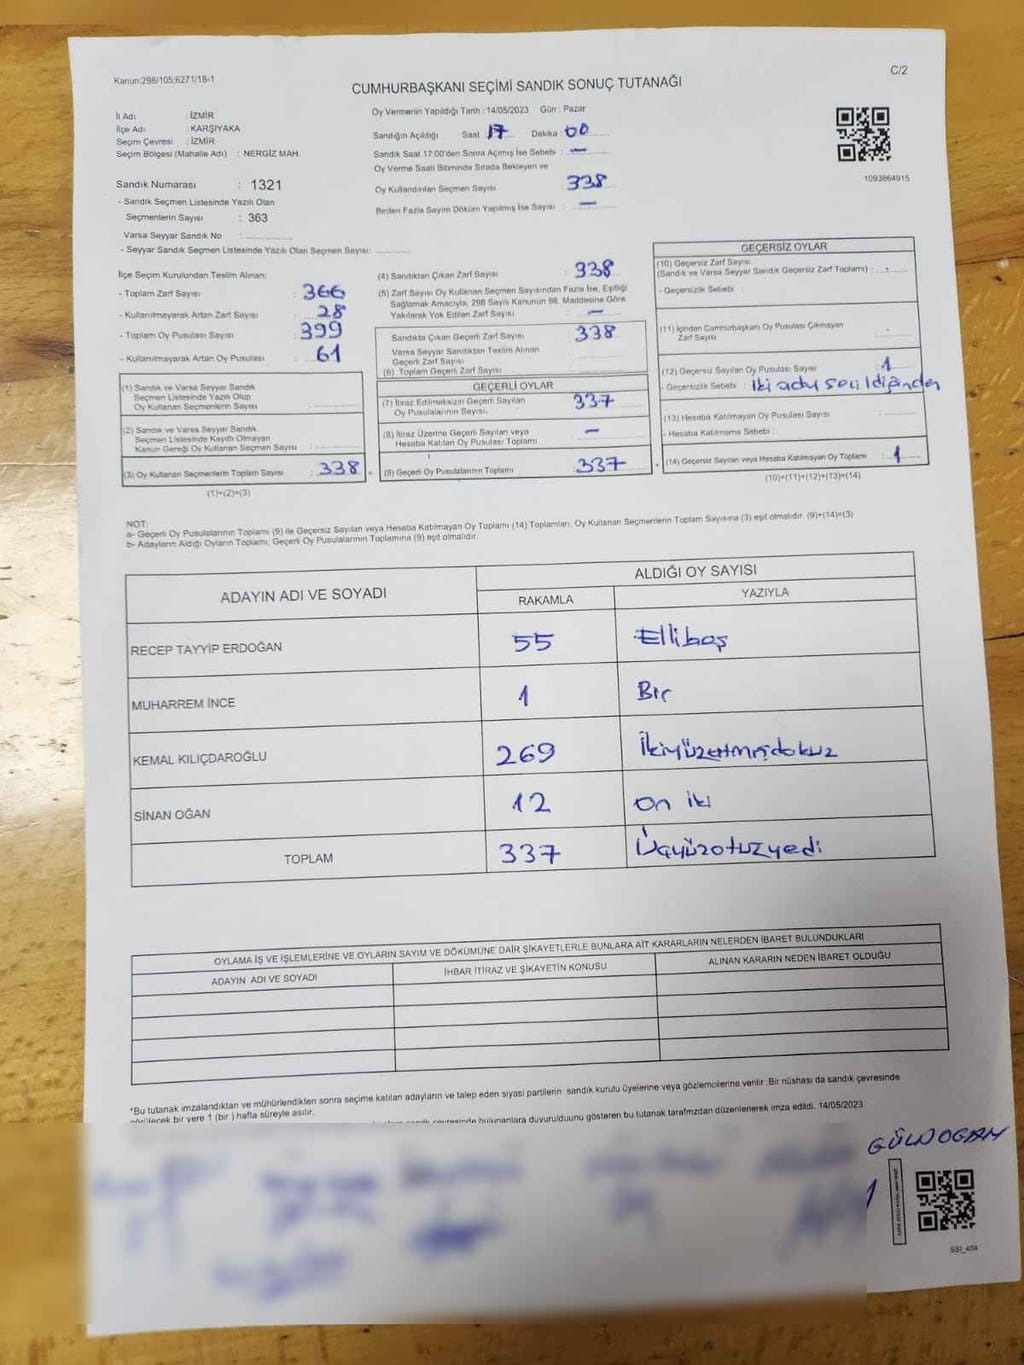 Kanun:298/105;6271/18-1
C/2
CUMHURBAŞKANI SEÇİMİ SANDIK SONUÇ TUTANAĞI
İl Adı : İZMİR
İlçe Adı : KARŞIYAKA
Seçim Çevresi : İZMİR
Seçim Bölgesi (Mahalle Adı) : NERGİZ MAH.
Sandık Numarası : 1321
- Sandık Seçmen Listesinde Yazılı Olan
Seçmenlerin Sayısı : 363
Varsa Seyyar Sandık No :
- Seyyar Sandık Seçmen Listesinde Yazılı Olan Seçmen Sayısı:
Oy Vermenin Yapıldığı Tarih : 14/05/2023 Gün : Pazar
Sandığın Açıldığı Saat 17 Dakika 00
Sandık Saat 17:00'den Sonra Açılmış İse Sebebi : —
Oy Verme Saati Bitiminde Sırada Bekleyen ve
Oy Kullandırılan Seçmen Sayısı 338
Birden Fazla Sayım Döküm Yapılmış İse Sayısı : —
1093864915
İlçe Seçim Kurulundan Teslim Alınan:
- Toplam Zarf Sayısı : 366
- Kullanılmayarak Artan Zarf Sayısı : 28
- Toplam Oy Pusulası Sayısı : 399
- Kullanılmayarak Artan Oy Pusulası : 61
(1) Sandık ve Varsa Seyyar Sandık
Seçmen Listesinde Yazılı Olup
Oy Kullanan Seçmenlerin Sayısı :
(2) Sandık ve Varsa Seyyar Sandık
Seçmen Listesinde Kayıtlı Olmayan
Kanun Gereği Oy Kullanan Seçmen Sayısı :
(3) Oy Kullanan Seçmenlerin Toplam Sayısı : 338
(1)+(2)=(3)
(4) Sandıktan Çıkan Zarf Sayısı : 338
(5) Zarf Sayısı Oy Kullanan Seçmen Sayısından Fazla İse, Eşitliği
Sağlamak Amacıyla, 298 Sayılı Kanunun 98. Maddesine Göre
Yakılarak Yok Edilen Zarf Sayısı : —
Sandıkta Çıkan Geçerli Zarf Sayısı : 338
Varsa Seyyar Sandıktan Teslim Alınan
Geçerli Zarf Sayısı
(6) Toplam Geçerli Zarf Sayısı :
GEÇERLİ OYLAR
(7) İtiraz Edilmeksizin Geçerli Sayılan
Oy Pusulalarının Sayısı, : 337
(8) İtiraz Üzerine Geçerli Sayılan veya
Hesaba Katılan Oy Pusulası Toplamı : —
(9) Geçerli Oy Pusulalarının Toplamı : 337
GEÇERSİZ OYLAR
(10) Geçersiz Zarf Sayısı
(Sandık ve Varsa Seyyar Sandık Geçersiz Zarf Toplamı) :
- Geçersizlik Sebebi :
(11) İçinden Cumhurbaşkanı Oy Pusulası Çıkmayan
Zarf Sayısı
(12) Geçersiz Sayılan Oy Pusulası Sayısı : 1
- Geçersizlik Sebebi : İki aday seçildiğinden
(13) Hesaba Katılmayan Oy Pusulası Sayısı :
- Hesaba Katılmama Sebebi :
(14) Geçersiz Sayılan veya Hesaba Katılmayan Oy Toplamı : 1
(10)+(11)+(12)+(13)=(14)
NOT:
a- Geçerli Oy Pusulalarının Toplamı (9) ile Geçersiz Sayılan veya Hesaba Katılmayan Oy Toplamı (14) Toplamları, Oy Kullanan Seçmenlerin Toplam Sayısına (3) eşit olmalıdır. (9)+(14)=(3)
b- Adayların Aldığı Oyların Toplamı, Geçerli Oy Pusulalarının Toplamına (9) eşit olmalıdır.
ADAYIN ADI VE SOYADI
ALDIĞI OY SAYISI
RAKAMLA YAZIYLA
RECEP TAYYİP ERDOĞAN 55 Ellibeş
MUHARREM İNCE 1 Bir
KEMAL KILIÇDAROĞLU 269 İkiyüzaltmışdokuz
SİNAN OĞAN 12 on iki
TOPLAM 337 Üçyüzotuzyedi
OYLAMA İŞ VE İŞLEMLERİNE VE OYLARIN SAYIM VE DÖKÜMÜNE DAİR ŞİKAYETLERLE BUNLARA AİT KARARLARIN NELERDEN İBARET BULUNDUKLARI
ADAYIN ADI VE SOYADI İHBAR İTİRAZ VE ŞİKAYETİN KONUSU ALINAN KARARIN NEDEN İBARET OLDUĞU
*Bu tutanak imzalandıktan ve mühürlendikten sonra seçime katılan adayların ve talep eden siyasi partilerin sandık kurulu üyelerine veya gözlemcilerine verilir .Bir nüshası da sandık çevresinde
görülecek bir yere 1 (bir ) hafta süreyle asılır.
bulunanlara duyurulduğunu gösteren bu tutanak tarafımızdan düzenlenerek imza edildi. 14/05/2023
GÜLDOGAN
SSI_404